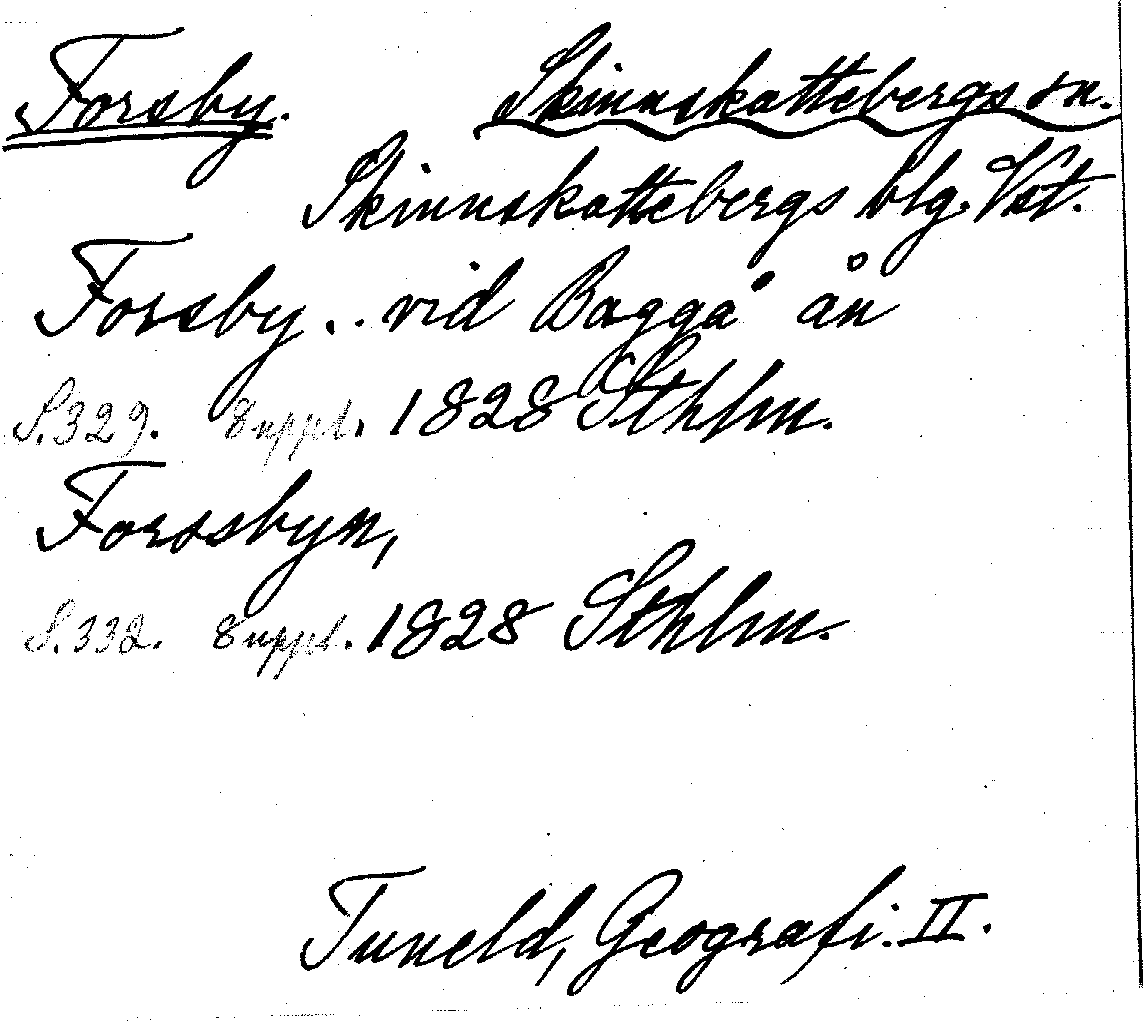 Forsby. Skinnskattebergs sn.
Skinnskattebergs blg. Vst.
Forsby... vid Baggå ån
S. 329. Suppl. 1828 Sthlm.
Forssbyn,
S. 332. Suppl. 1828 Sthlm.
Tuneld, Geografi. II.